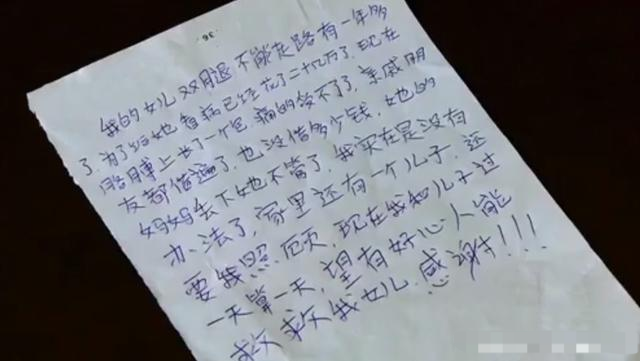 我的女儿双腿不能走路有一年多
了.为了给她看病已经花了二十几万了.现在
胳膊上长了一个包.痛的受不了了.亲戚朋
友都借遍了.也没借多少钱.她的
妈妈丢下她也不管了.我实在是没有
办法了.家里还有一个儿子.还
要我照顾.现在我和儿子过
一天算一天.望有好心人能
救救我女儿.感谢!!!